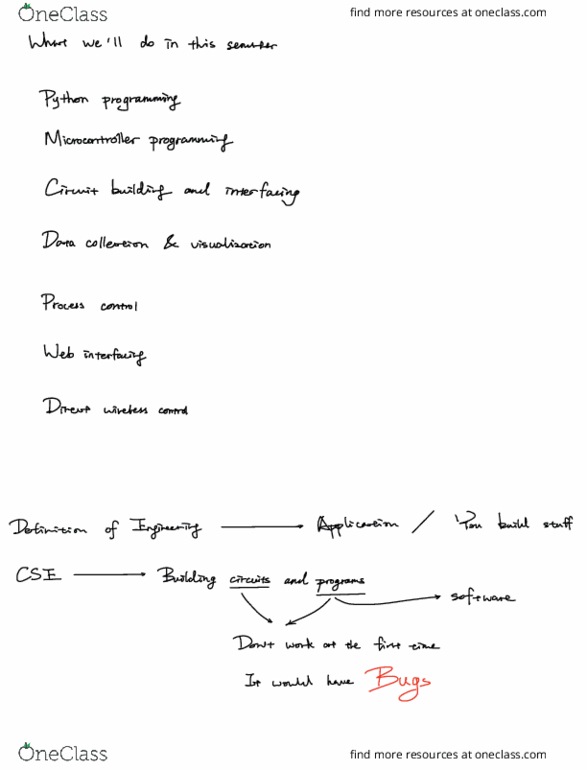 OneClass find more resources at oneclass.com
What we'll do in this semester
Python programming
Microcontroller programming
Circuit building and interfacing
Data collection & visualization
Process control
Web interfacing
Direct wireless control
Definition of Engineering → Application / You build stuff
CSE → Building circuits and programs
software
Don't work at the first time
It would have Bugs
OneClass find more resources at oneclass.com